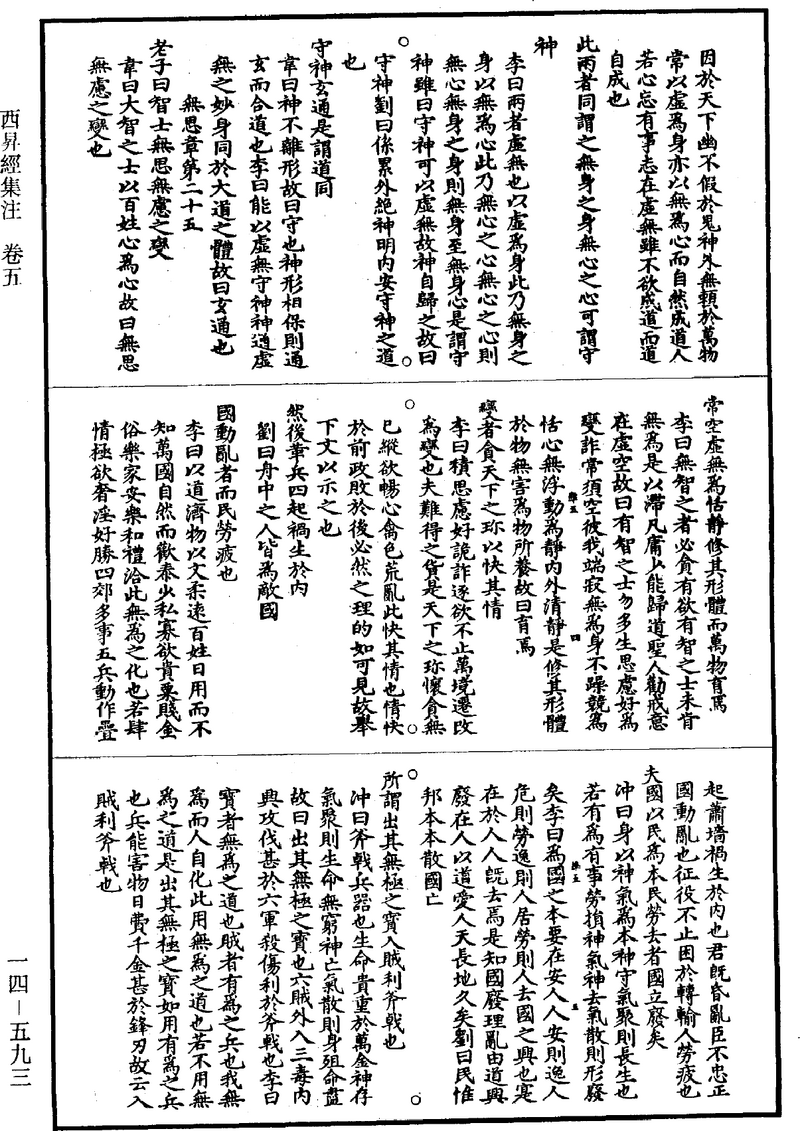 西昇經集注　卷五
因於天下幽不假於鬼神外無賴於萬物
常以虛為身亦以無為心而自然成道人
若心忘有事志在虛無雖不欲成道而道
自成也
此兩者同謂之無身之身無心之心可謂守
神
李曰兩者虛無也以虛為身此乃無身之
身以無為心此乃無心之心無心之心則
無心無身之身則無身至無身心是謂守
神雖曰守神可以虛無故神自歸之故曰
守神劉曰係累外絕神明內安守神之道
也
守神玄通是謂道同
韋曰神不離形故曰守也神形相保則通
玄而合道也李曰能以虛無守神神通虛
無之妙身同於大道之體故曰玄通也
無思章第二十五
老子曰智士無思無慮之變
韋曰大智之士以百姓心為心故曰無思
無慮之變也
常空虛無為恬靜修其形體而萬物育焉
李曰無智之者必貪有欲有智之士未肯
無為是以滯凡庸少能歸道聖人勸戒意
在虛空故曰有智之士勿多生思慮好為
變詐常須空彼我端寂無為身不躁競為
恬心無浮動為靜內外清靜是修其形體
於物無害為物所養故曰育焉
變者貪天下之珎以快其情
李曰積思慮好詭詐逐欲不止萬境遷改
為變也夫難得之貨是天下之珎懷貪無
已縱欲暢心禽色荒亂此快其情也情快
於前政敗於後必然之理的如可見故舉
下文以示之也
然後葦兵四起禍生於內
劉曰舟中之人皆為敵國
國動亂者而民勞疲也
李曰以道濟物以文柔遠百姓日用而不
知萬國自然而歡泰少私寡欲貴粟賤金
俗樂家安樂和禮洽此無為之化也若肆
情極欲奢淫好勝四郊多事五兵動作釁
起蕭墻禍生於內也君既昏亂臣不忠正
國動亂也征役不止困於轉輸人勞疲也
夫國以民為本民勞去者國立廢矣
沖曰身以神氣為本神守氣聚則長生也
若有為有事勞損神氣神去氣散則形廢
矣李曰為國之本要在安人人安則逸人
危則勞逸則人居勞則人去國之興也寔
在於人人既去焉是知國廢理亂由道興
廢在人以道愛人天長地久矣劉曰民惟
邦本本散國亡
所謂出其無極之寶入賊利斧戟也
沖曰斧戟兵器也生命貴重於萬金神存
氣聚則生命無窮神亡氣散則身殂命盡
故曰出其無極之寶也六賊外入三毒內
興攻伐甚於六軍殺傷利於斧戟也李曰
寶者無為之道也賊者有為之兵也我無
為而人自化此用無為之道也若不用無
為之道是出其無極之寶如用有為之兵
也兵能害物日費千金甚於鋒刃故云入
賊利斧戟也
一四－五九三